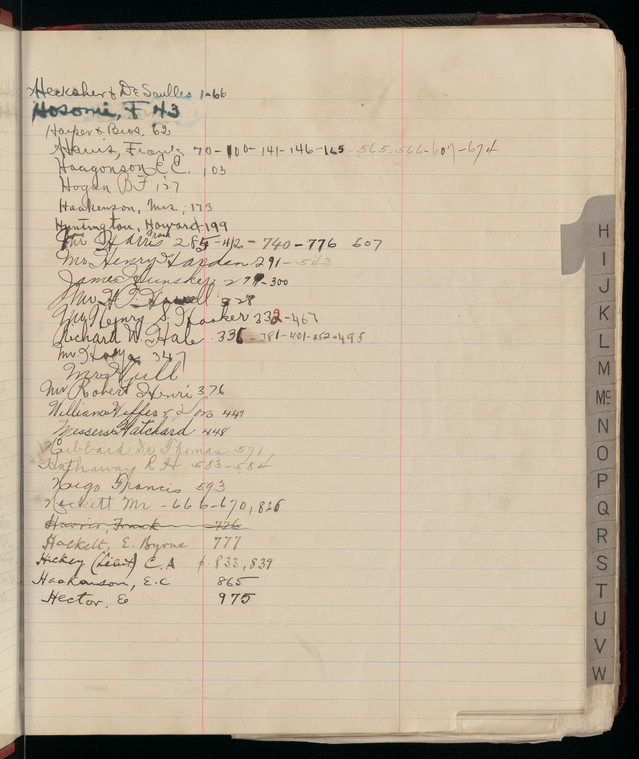 Hecksher & De Saulles 1-66
Hosomi, F 43
Harper & Bros. 62
Harris, Frank 70-100-141-146-165-565-566-607-674
Haagonson E.C. 103
Hogan B F 127
Haakenson, Mrs, 173
Huntington, Howard-199
Mr Harris Frank 285-412-740-776 607
Mr. Henry Harden 291-543
James Hunsker 299-300
Mr H. Howell 328
Mr Henry S. Hooker 332-467
Richard W. Hale 336-381-401-452-495
Mr 347
Mrs Hull
Mr Robert Henri 376
William & Son 447
Messers Hatchard 448
Hibbard Dr Thomas 571
Hathaway R H. 583-584
Francis 593
Hackett Mr -666-670, 826
Harris, Frank 776
Hackett, E. Byrne 777
Hickey (Lieut) C.A p. 833, 839
Haakonson, E.C 865
Hector, E 975
H
I
J
K
L
M
Mc
N
O
P
Q
R
S
T
U
V
W